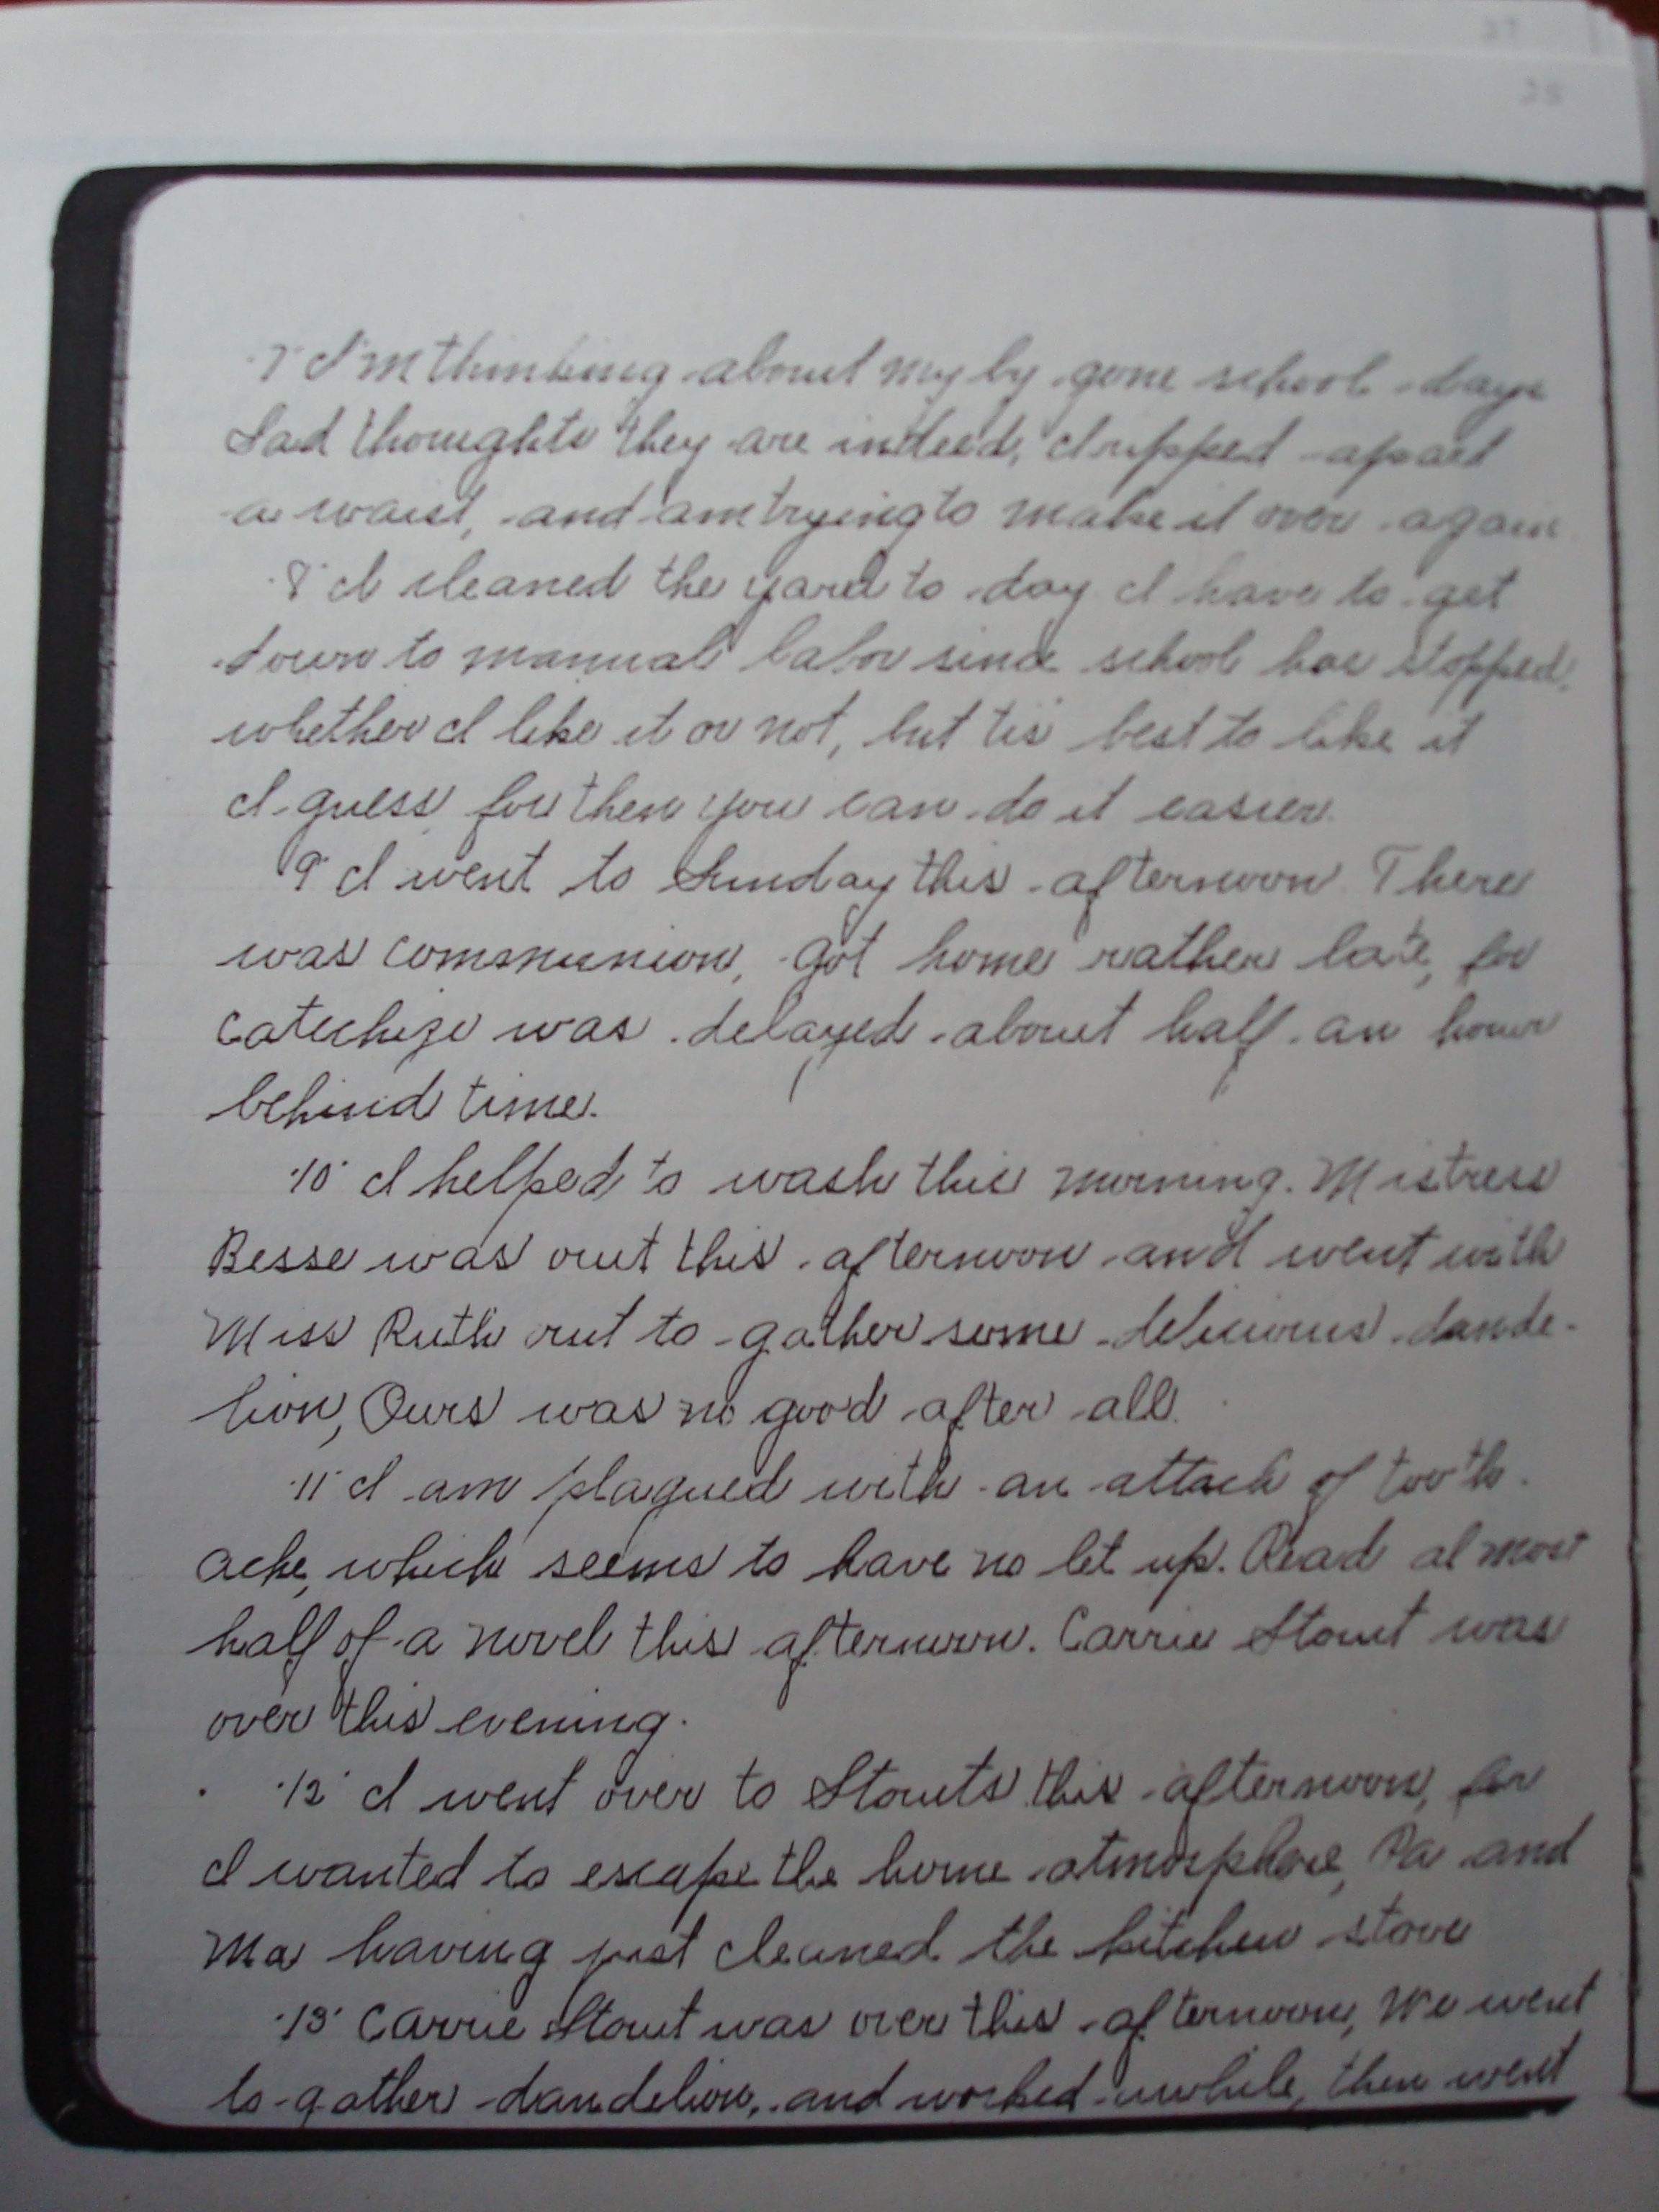 25
7 I'm thinking about my by gone school days
Sad thoughts they are indeed, I ripped apart
a waist, and am trying to make it over again
8 I cleaned the yard to day I have to get
down to manual labor since school has stopped,
whether I like it or not, but tis best to like it
I guess, for then you can do it easier.
9 I went to Sunday this afternoon. There
was communion, got home rather late, for
catechize was delayed about half an hour
behind time.
10 I helped to wash this morning. Mistress
Besse was out this afternoon and went with
Miss Ruth out to gather some delicious dande-
lion, Ours was no good after all.
11 I am plagued with an attack of tooth
ache, which seems to have no let up. Read almost
half of a novel this afternoon. Carrie Stout was
over this evening.
12 I went over to Stouts this afternoon, for
I wanted to escape the home atmosphere, Pa and
Ma having just cleaned the kitchen stove
13 Carrie Stout was over this afternoon, We went
to gather dandelion, and worked awhile, then went